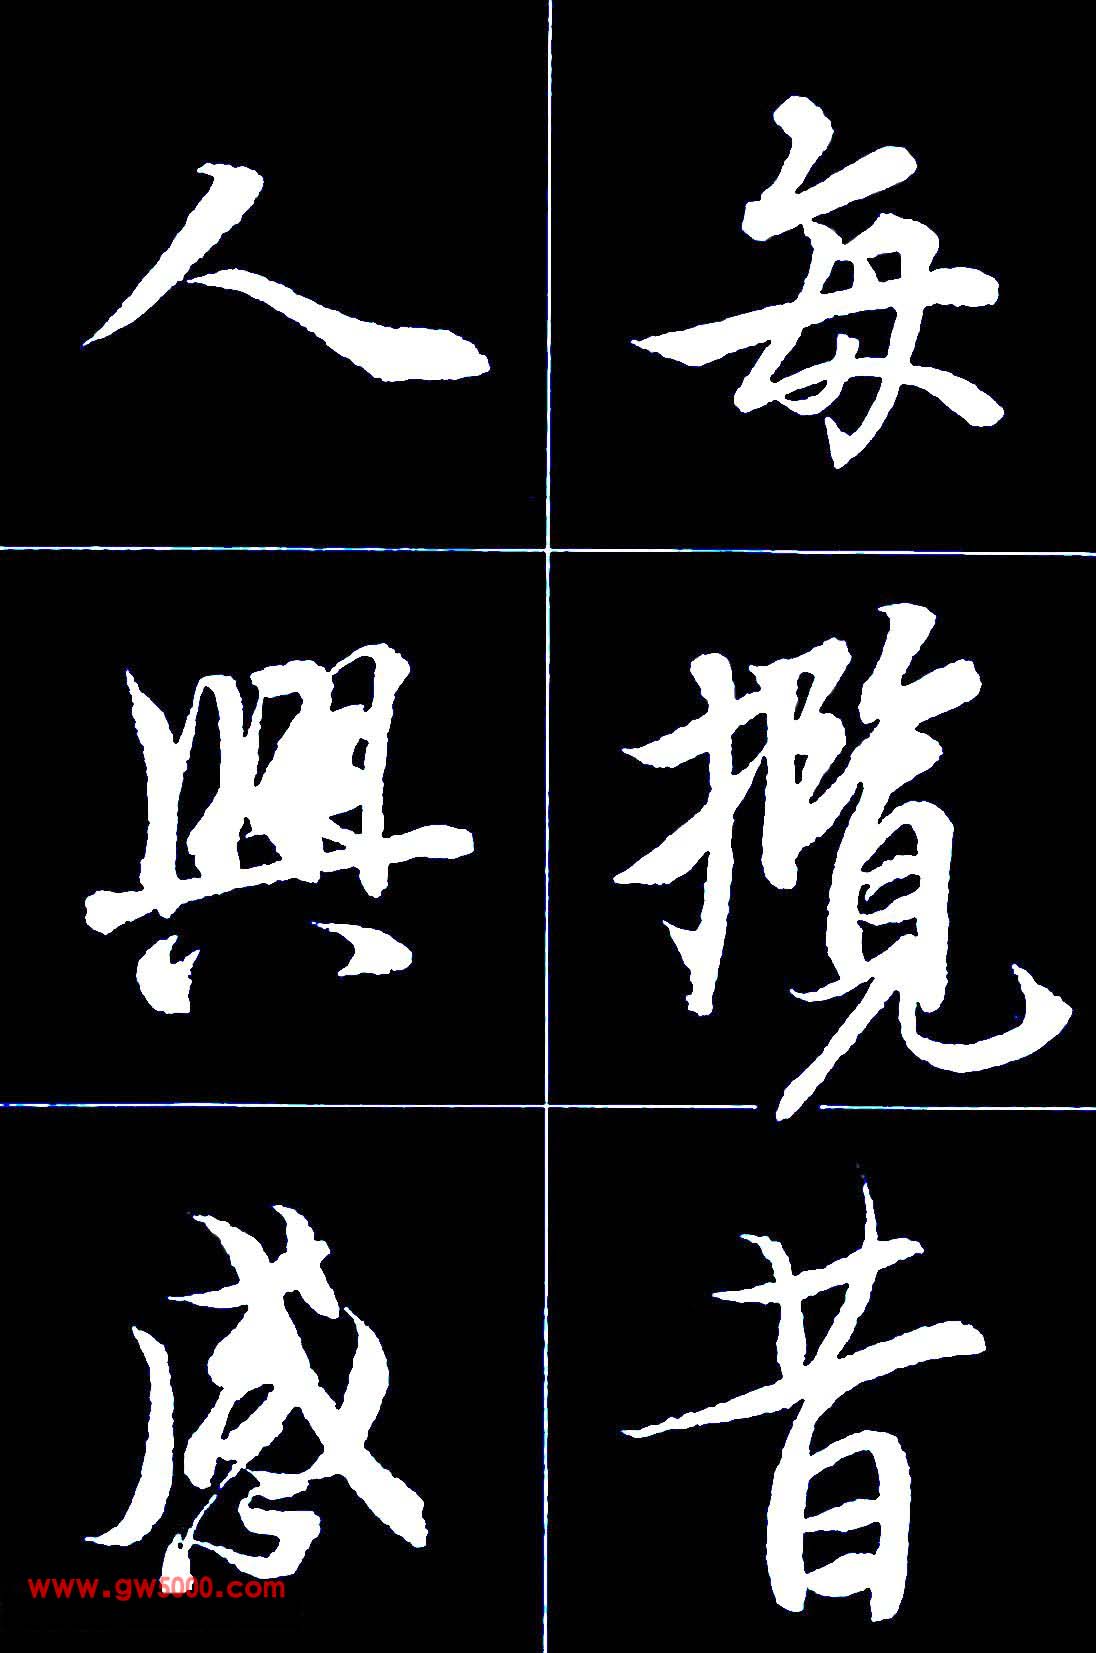 每攬昔
人興感
www.gw5000.com